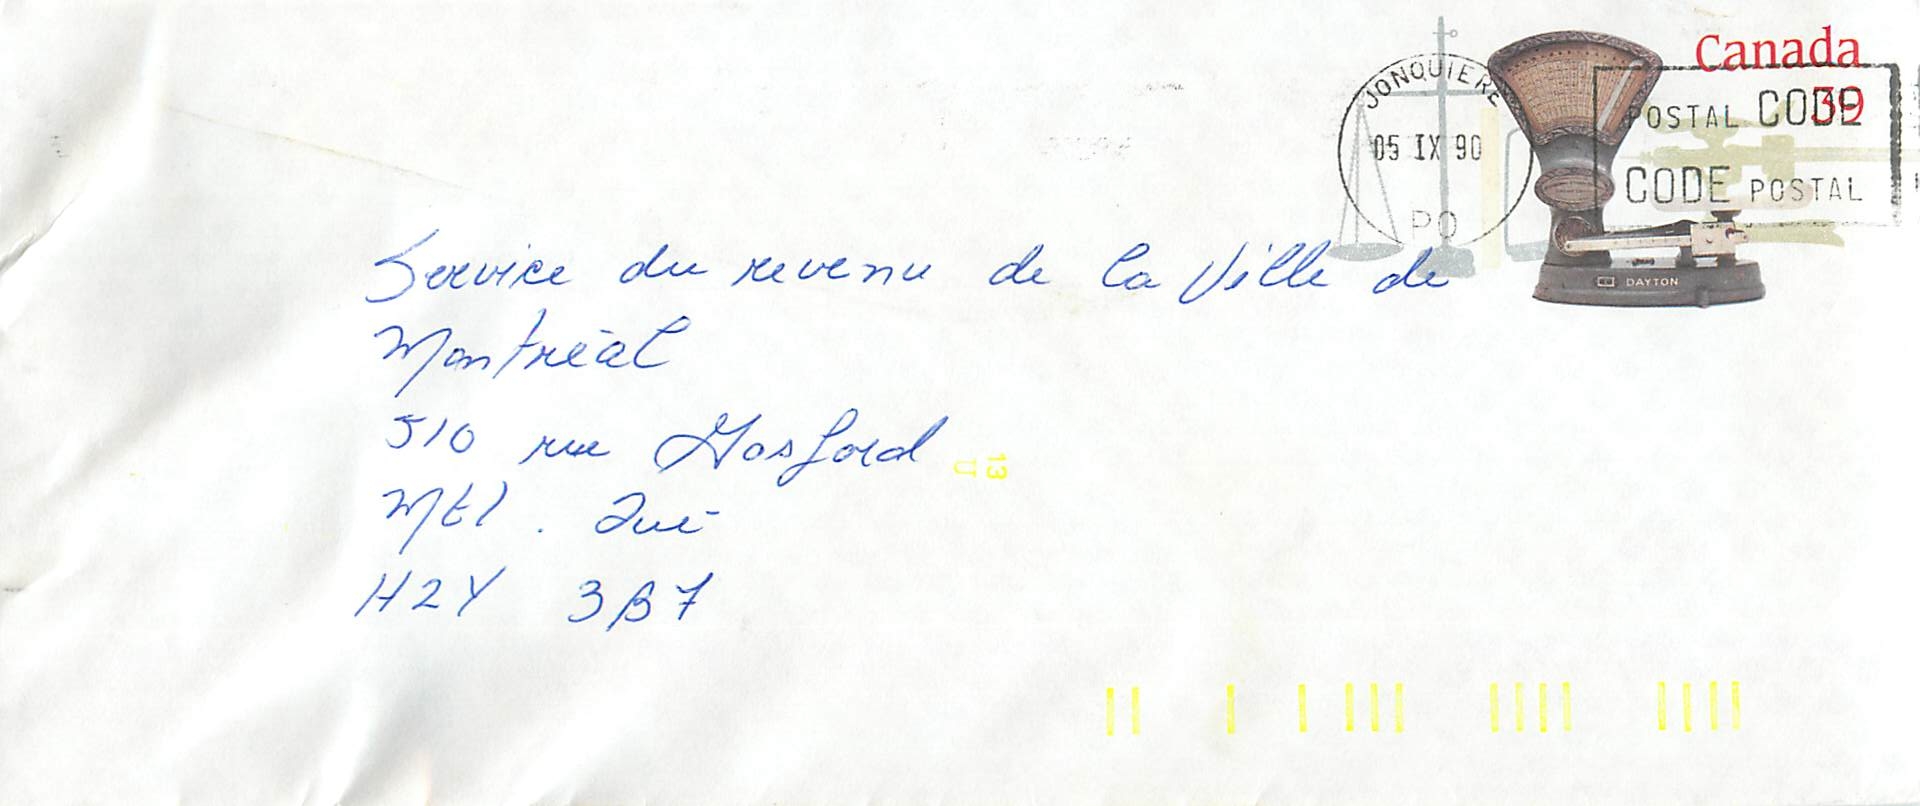 Canada
39
JONQUIERE
05 IX 90
PQ
POSTAL CODE
CODE POSTAL
DAYTON
Service du revenu de la Ville de
Montréal
510 rue Gosford
Mtl. Qué
H2Y 3B7
13
U